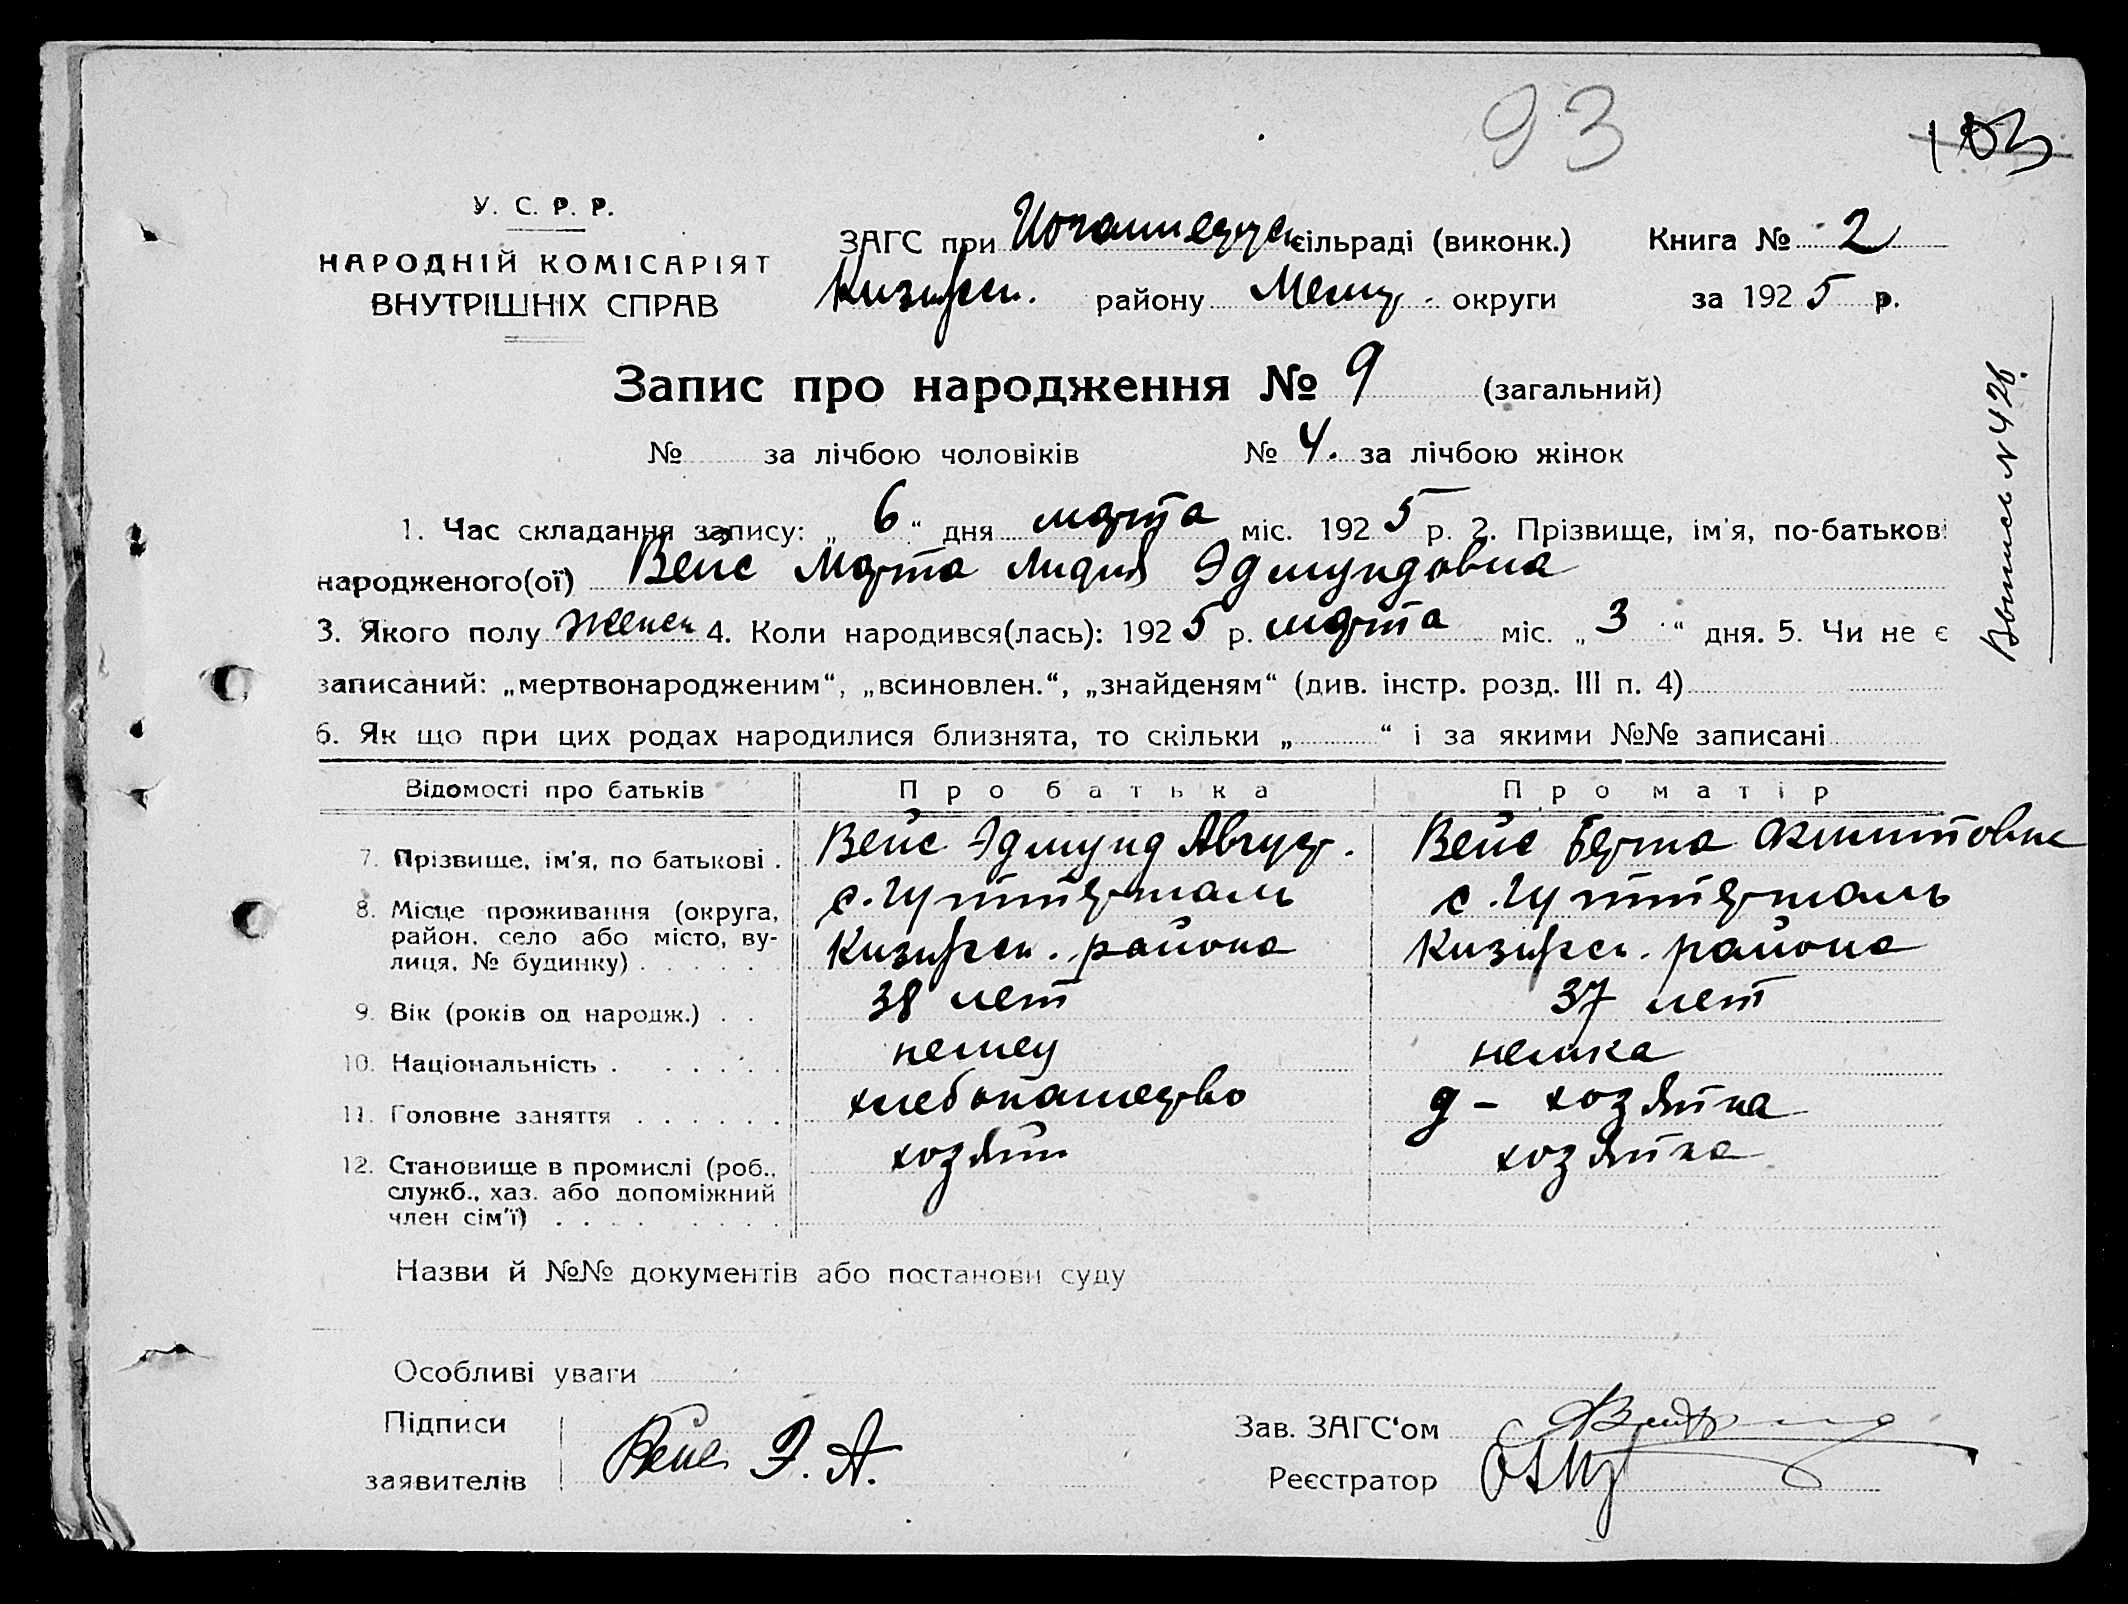 93
103
У. С. Р. Р.
НАРОДНІЙ КОМІСАРІЯТ
ВНУТРІШНІХ СПРАВ
ЗАГС при сільраді (виконк.) Книга № 2
району округи за 1925 р.
Запис про народження № 9 (загальний)
№ за лічбою чоловіків № 4. за лічбою жінок
1. Час складання запису: „6“ дня марта міс. 1925 р. 2. Прізвище, ім'я, по-батькові
народженого(ої) Вейс Марта Лидия Эдмундовна
3. Якого полу женск 4. Коли народився(лась): 1925 р. марта міс. „3“ дня. 5. Чи не є
записаний: „мертвонародженим“, „всиновлен.“, „знайденям“ (див. інстр. розд. III п. 4)
6. Як що при цих родах народилися близнята, то скільки „ “ і за якими №№ записані
Відомості про батьків Про батька Про матір
7. Прізвище, ім'я, по батькові . Вейс Эдмунд Август. Вейс Берта
8. Місце проживання (округа, район, село або місто, вулиця, № будинку) . . . . . с. Гуттерталь с. Гуттерталь
района района
9. Вік (років од народж.) . . 38 лет 37 лет
10. Національність . . . . . . немец немка
11. Головне заняття . . . . . . хлебопашество д – хозяйка
12. Становище в промислі (роб., служб., хаз. або допоміжний член сім'ї) . . . . . . . . хозяин хозяйка
Назви й №№ документів або постанови суду
Особливі уваги
Підписи
заявителів Вейс Э. А.
Зав. ЗАГС'ом
Реєстратор